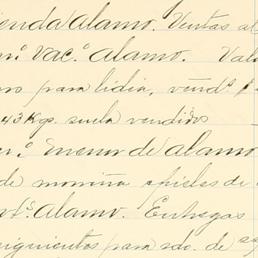 ienda Alamo. Ventas al
n.º Vac.º Alamo. Val
ro para lidia, vend.s
43 Kgs. suela vendidos
n.º Menor de Alamo
de morriña chicles de
t.s Alamo. Entregas
siguientes para sdo. de s/